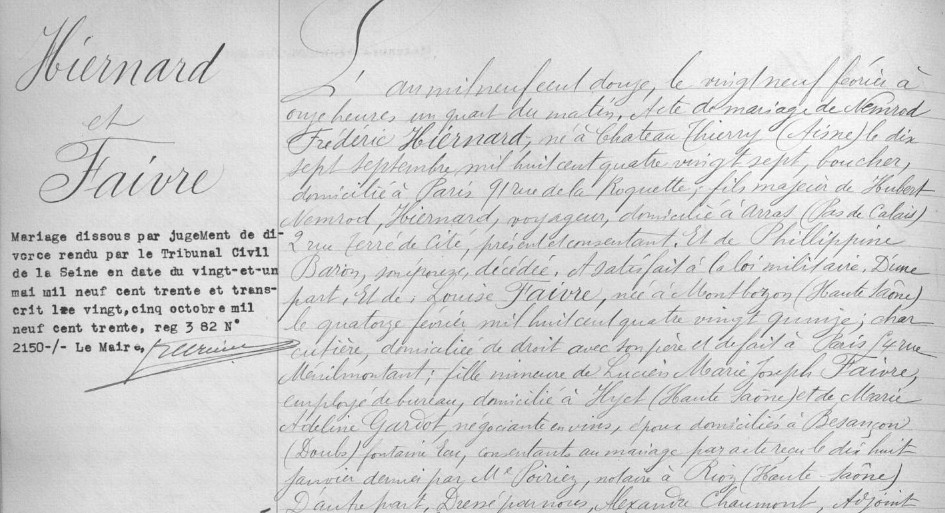 Hiernard
et
Faivre
Mariage dissous par jugeMent de di-
vorce rendu par le Tribunal Civil
de la Seine en date du vingt-et-un
mai mil neuf cent trente et trans-
crit lee vingt,cinq octobre mil
neuf cent trente, reg 3 82 N°
2150-/- Le Maire,
L'an mil neuf cent douze, le vingt neuf février à
onze heures un quart du matin, Acte de mariage de Nemrod
Frédéric Hiernard, né à Chateau Thierry (Aisne) le dix
sept septembre mil huit cent quatre vingt sept, boucher,
domicilié à Paris 91 rue de la Roquette; fils majeur de Hubert
Nemrod, Hiernard, voyageur, domicilié à Arras (Pas de Calais)
2 rue Terré de Cité, présent et consentant. Et de Phillippine
Baron, son épouze, décédée. A satisfait à la loi militaire. D'une
part. Et de: Louise Faivre, née à Montbozon (Haute Saône)
le quatorze février mil huit cent quatre vingt quinze; char
cutière, domiciliée de droit avec son père et de fait à Paris 14 rue
Ménilmontant; fille mineure de Lucien Marie Joseph Faivre,
employé de bureau, domicilié à Hyet (Haute Saône) et de Marie
Adeline Gardot, négociante en vins, époux domiciliés à Besançon
(Doubs) fontaine consentants au mariage par acte reçu le dix huit
janvier dernier par Me Poiriez, notaire à Rioz (Haute-Saône)
D'autre part, Dressé par nous, Alexandre Chaumont, Adjoint